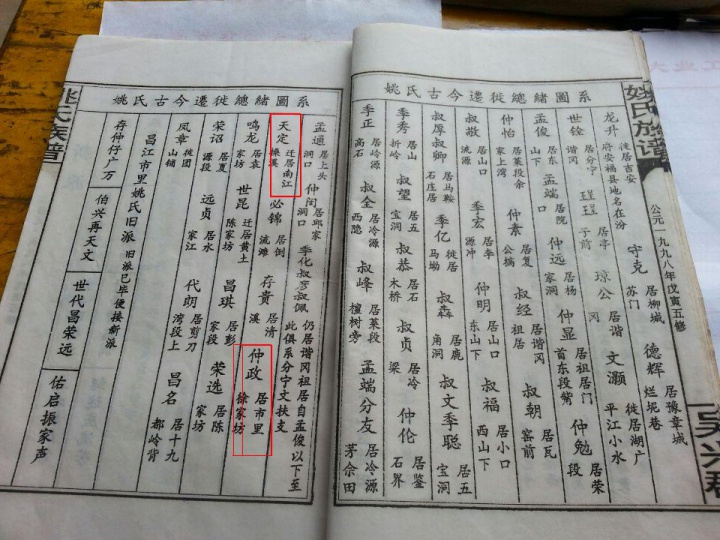 姚氏古今遷徙總緒圖系
姚氏族谱
公元一九九八年戊寅五修
吴兴郡
龙升 徙居吉安府安福县地名在汾 守克 居柳城苏门 德辉 居豫章城烂坭巷
世铨 居分宁谐冈 居亭子前 琼公 居谐冈 文灏 徙居湖广平江小水
孟俊 居山下东 孟端 居院 仲远 居杨家洞 仲显 居祖居门首东段紫 仲勉 居荣
仲怡 居莱段余家上湾 仲素 居复公摛 叔经 居谐冈祖居 叔朝 居瓦窑前
叔敖 居山口流源 季宏 居李源冲 仲明 居山口东山下 叔福 居小口西山下
叔厚叔卿 居马鞍石庄居 季亿 徙居马坳 叔森 居鹿角洞 叔文季聪 居五宝洞
季秀 居山口折岭 叔望 居五宝洞 叔恭 居石木桥 叔贞 居冷梁 仲伦 居鉴石界
季正 居岭源高石 叔全 居冷源西隐 叔峰 居莱段檀树旁 孟端分友 居冷源茅佘田
姚氏古今遷徙總緒圖系
姚氏族普
孟通 居上头洞口 仲闰 居邱家洞口 季化叔彦叔佩 仍居谐冈祖居自孟俊以下至此俱系分宁文扶支
天定 迁居南江 必锦 居倒流滩 存贵 居清溪 仲政 居市里徐家坊
鸣龙 居袁家坊 世昆 迁居黄土陈家坊 昌琪 居彭家段 荣选 居陈家坊
荣诏 居夏源段 远贞 居水家江 代朗 居剪刀湾段上 昌名 居十九都岭背
凤章 徙团山铺
昌江市里姚氏旧派 旧派已毕便接新派
存仲仔广万 伯兴再天文 世代昌荣远 佑启振家声